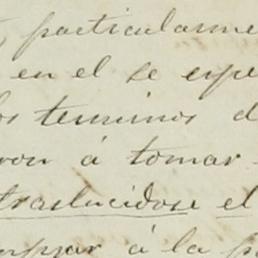 particularme
en el se espe
os terminos d
ron á tomar
traslucidose el
á la p